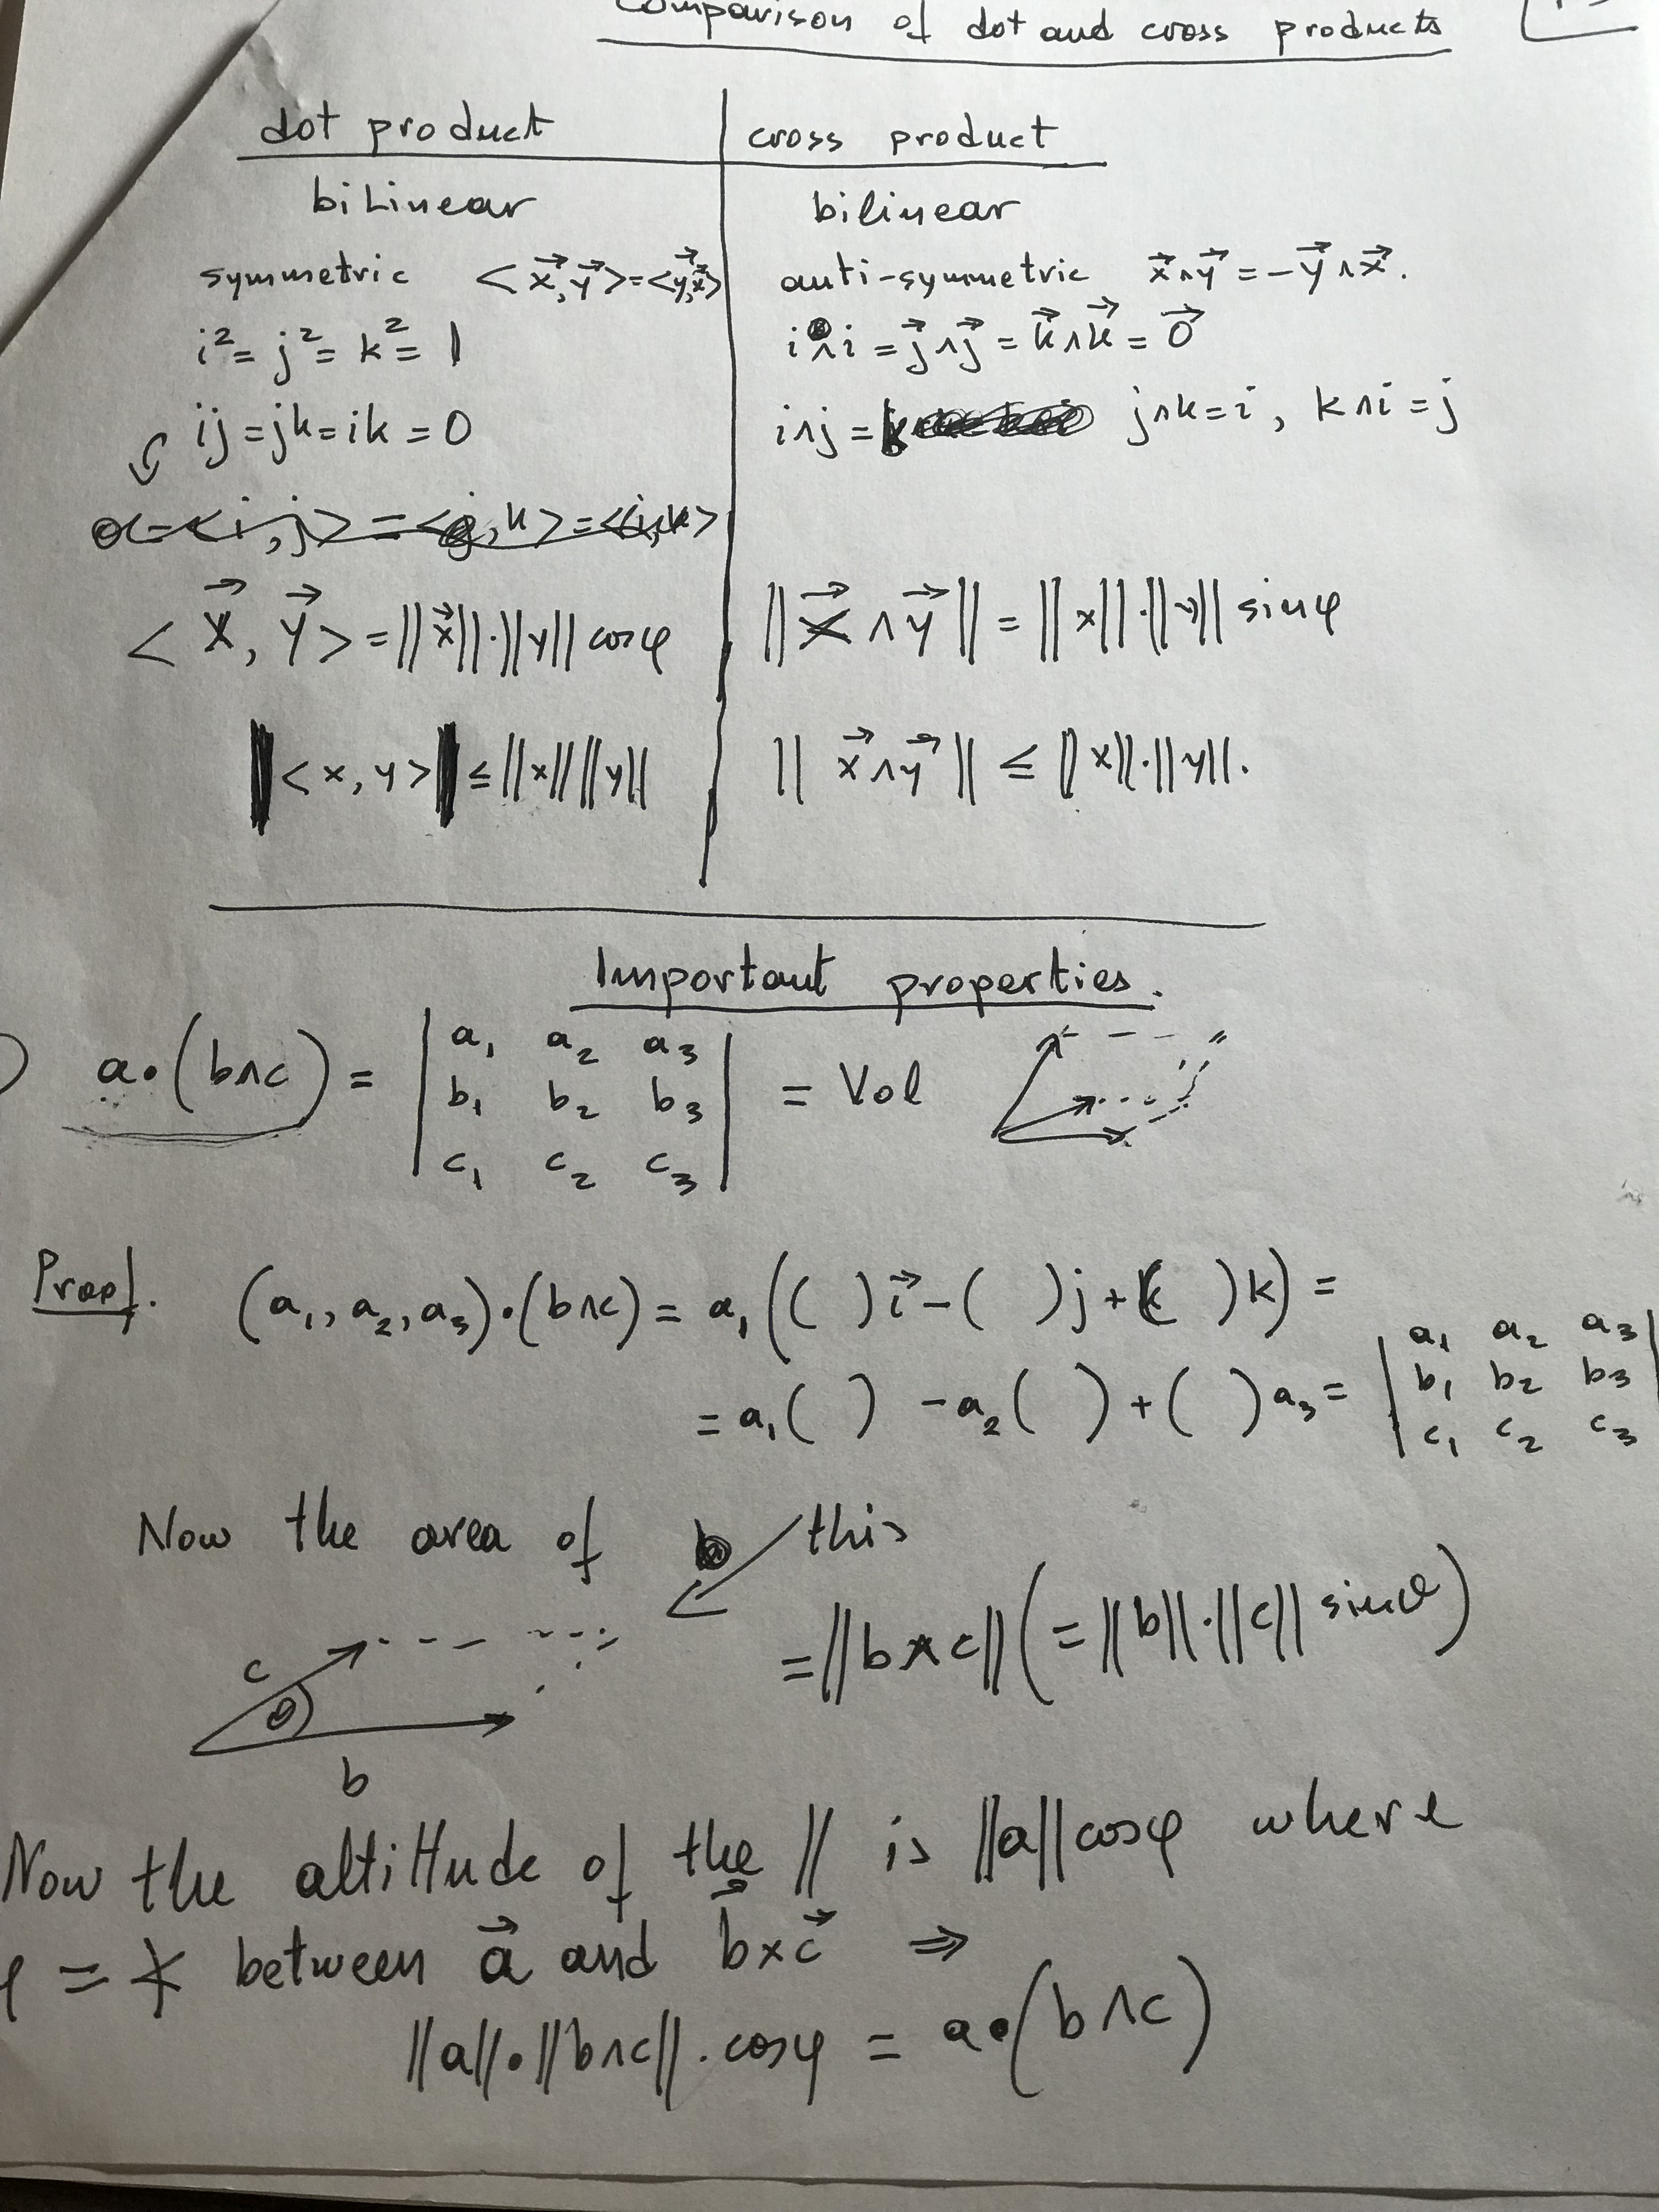 Comparison of dot and cross products
dot product | cross product
bilinear | bilinear
symmetric <x⃗, y⃗> = <y⃗, x⃗> | anti-symmetric x⃗∧y⃗ = -y⃗∧x⃗.
i² = j² = k² = 1 | i∧i = j⃗∧j⃗ = k⃗∧k⃗ = 0⃗
ij = jk = ik = 0 | i∧j = k j∧k = i, k∧i = j
0 = <i, j> = <j, k> = <i, k>
<x⃗, y⃗> = ||x⃗||·||y|| cosφ | ||x⃗∧y⃗|| = ||x||·||y|| sinφ
|<x, y>| ≤ ||x|| ||y|| | ||x⃗∧y⃗|| ≤ ||x||·||y||.
Important properties.
a•(b∧c) = | a₁ a₂ a₃ | = Vol
| b₁ b₂ b₃ |
| c₁ c₂ c₃ |
Proof. (a₁, a₂, a₃)•(b∧c) = a₁(( )i⃗ - ( )j + ( )k) =
= a₁( ) - a₂( ) + ( )a₃ = | a₁ a₂ a₃ |
| b₁ b₂ b₃ |
| c₁ c₂ c₃ |
Now the area of this
= ||b∧c|| (= ||b||·||c|| sinθ)
c
θ
b
Now the altittude of the // is ||a|| cosφ where
φ = ∡ between a⃗ and b⃗×c⃗ ⇒
||a||•||b∧c||·cosφ = a•(b∧c)